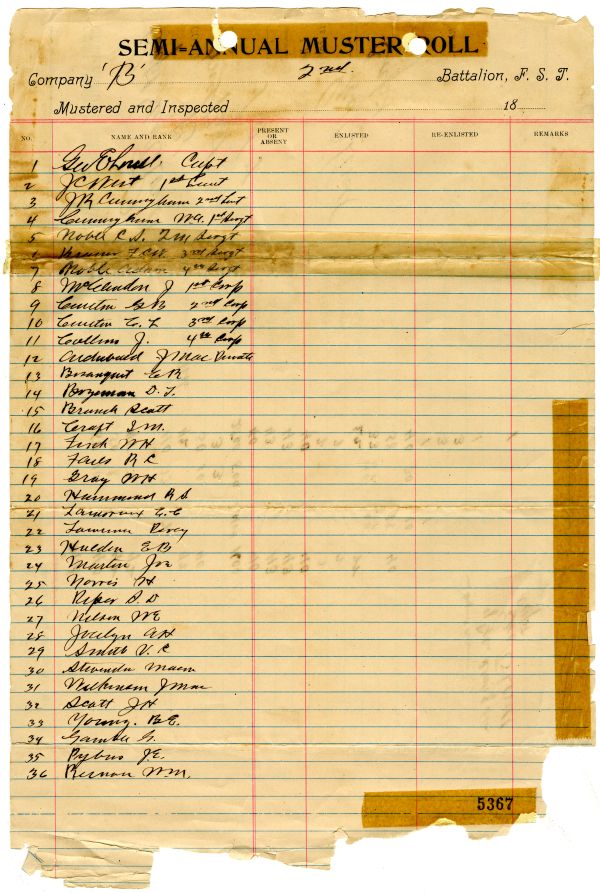 SEMI-ANNUAL MUSTER ROLL
Company 'B' 2nd. Battalion, F. S. T.
Mustered and Inspected 18
NO. NAME AND RANK PRESENT OR ABSENT ENLISTED RE-ENLISTED REMARKS
1 Geo Capt
2 J C West 1st Lieut
3 J R Cunningham 2nd Lieut
4 Cunningham 1st Sergt
5 Noble Sergt
3rd Sergt
7 Noble Adam 4th Sergt
8 McClendon J 1st Corp
9 G B 2nd Corp
10 C. L 3rd Corp
11 Collins J. 4th Corp
12 J Mac Private
13 Bosanquet E R
14 Bozeman D. T.
15 Branch Scott
16 Craft I. M.
17 Fink W H
18 R C
19 Gray W H
20 Hammond R S
21 C. C
22 Lawrence Percy
23 E B
24 Martin Jno
25 Norris H
26 Piper D. D
27 Nelson W E
28 Jocelyn A H
29 Smith V. C
30
31 Wilkinson J Mac
32 Scott J H
33 Young. B E.
34 Gamble G.
35 Pybus J E.
36 W. M.
5367